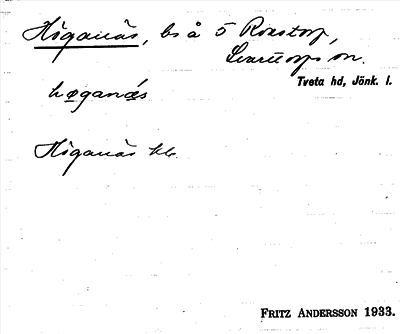 Höganäs, ls å 5 Roestorp,
Svarttorps sn.
Tveta hd, Jönk. l.
høganǽs
Höganäs kk.
FRITZ ANDERSSON 1933.